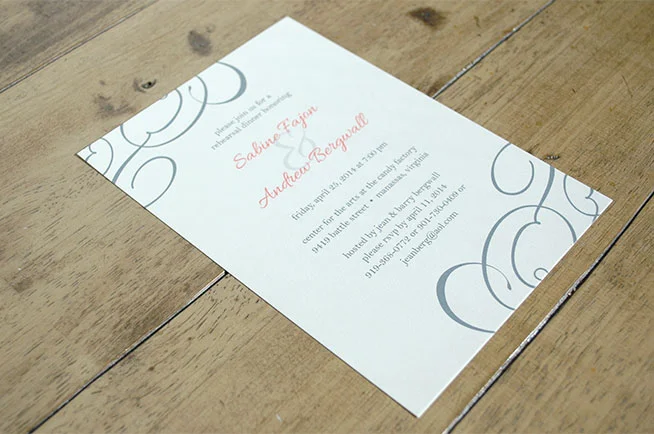 please join us for a
rehearsal dinner honoring
Sabine Fajan
&
Andrew Bergwall
friday, april 25, 2014 at 7:00 pm
center for the arts at the candy factory
9419 battle street • manassas, virginia
hosted by jean & harry bergwall
please rsvp by april 11, 2014
919-368-0772 or 901-730-0409 or
jeanberg@aol.com